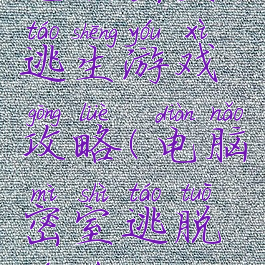 táo shēng yóu xì
逃生游戏
gōng lüè diàn nǎo
攻略(电脑
mì shì táo tuō
密室逃脱